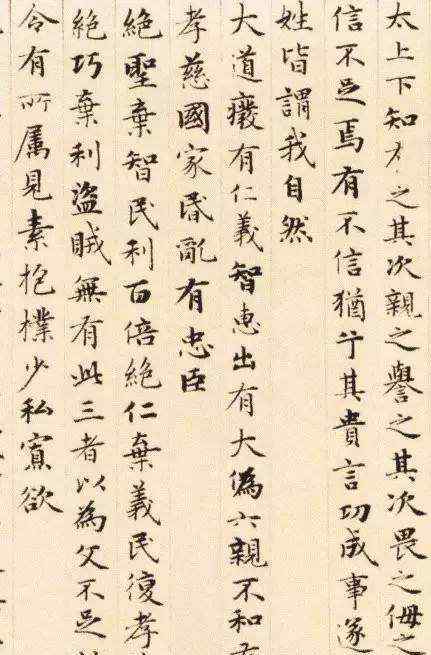 太上下知有之其次親之譽之其次畏之侮之
信不足焉有不信猶乎其貴言功成事遂
姓皆謂我自然
大道癈有仁義智惠出有大偽六親不和有
孝慈國家昏亂有忠臣
絕聖棄智民利百倍絕仁棄義民復孝
絕巧棄利盜賊無有此三者以為文不足
令有所屬見素抱樸少私寡欲